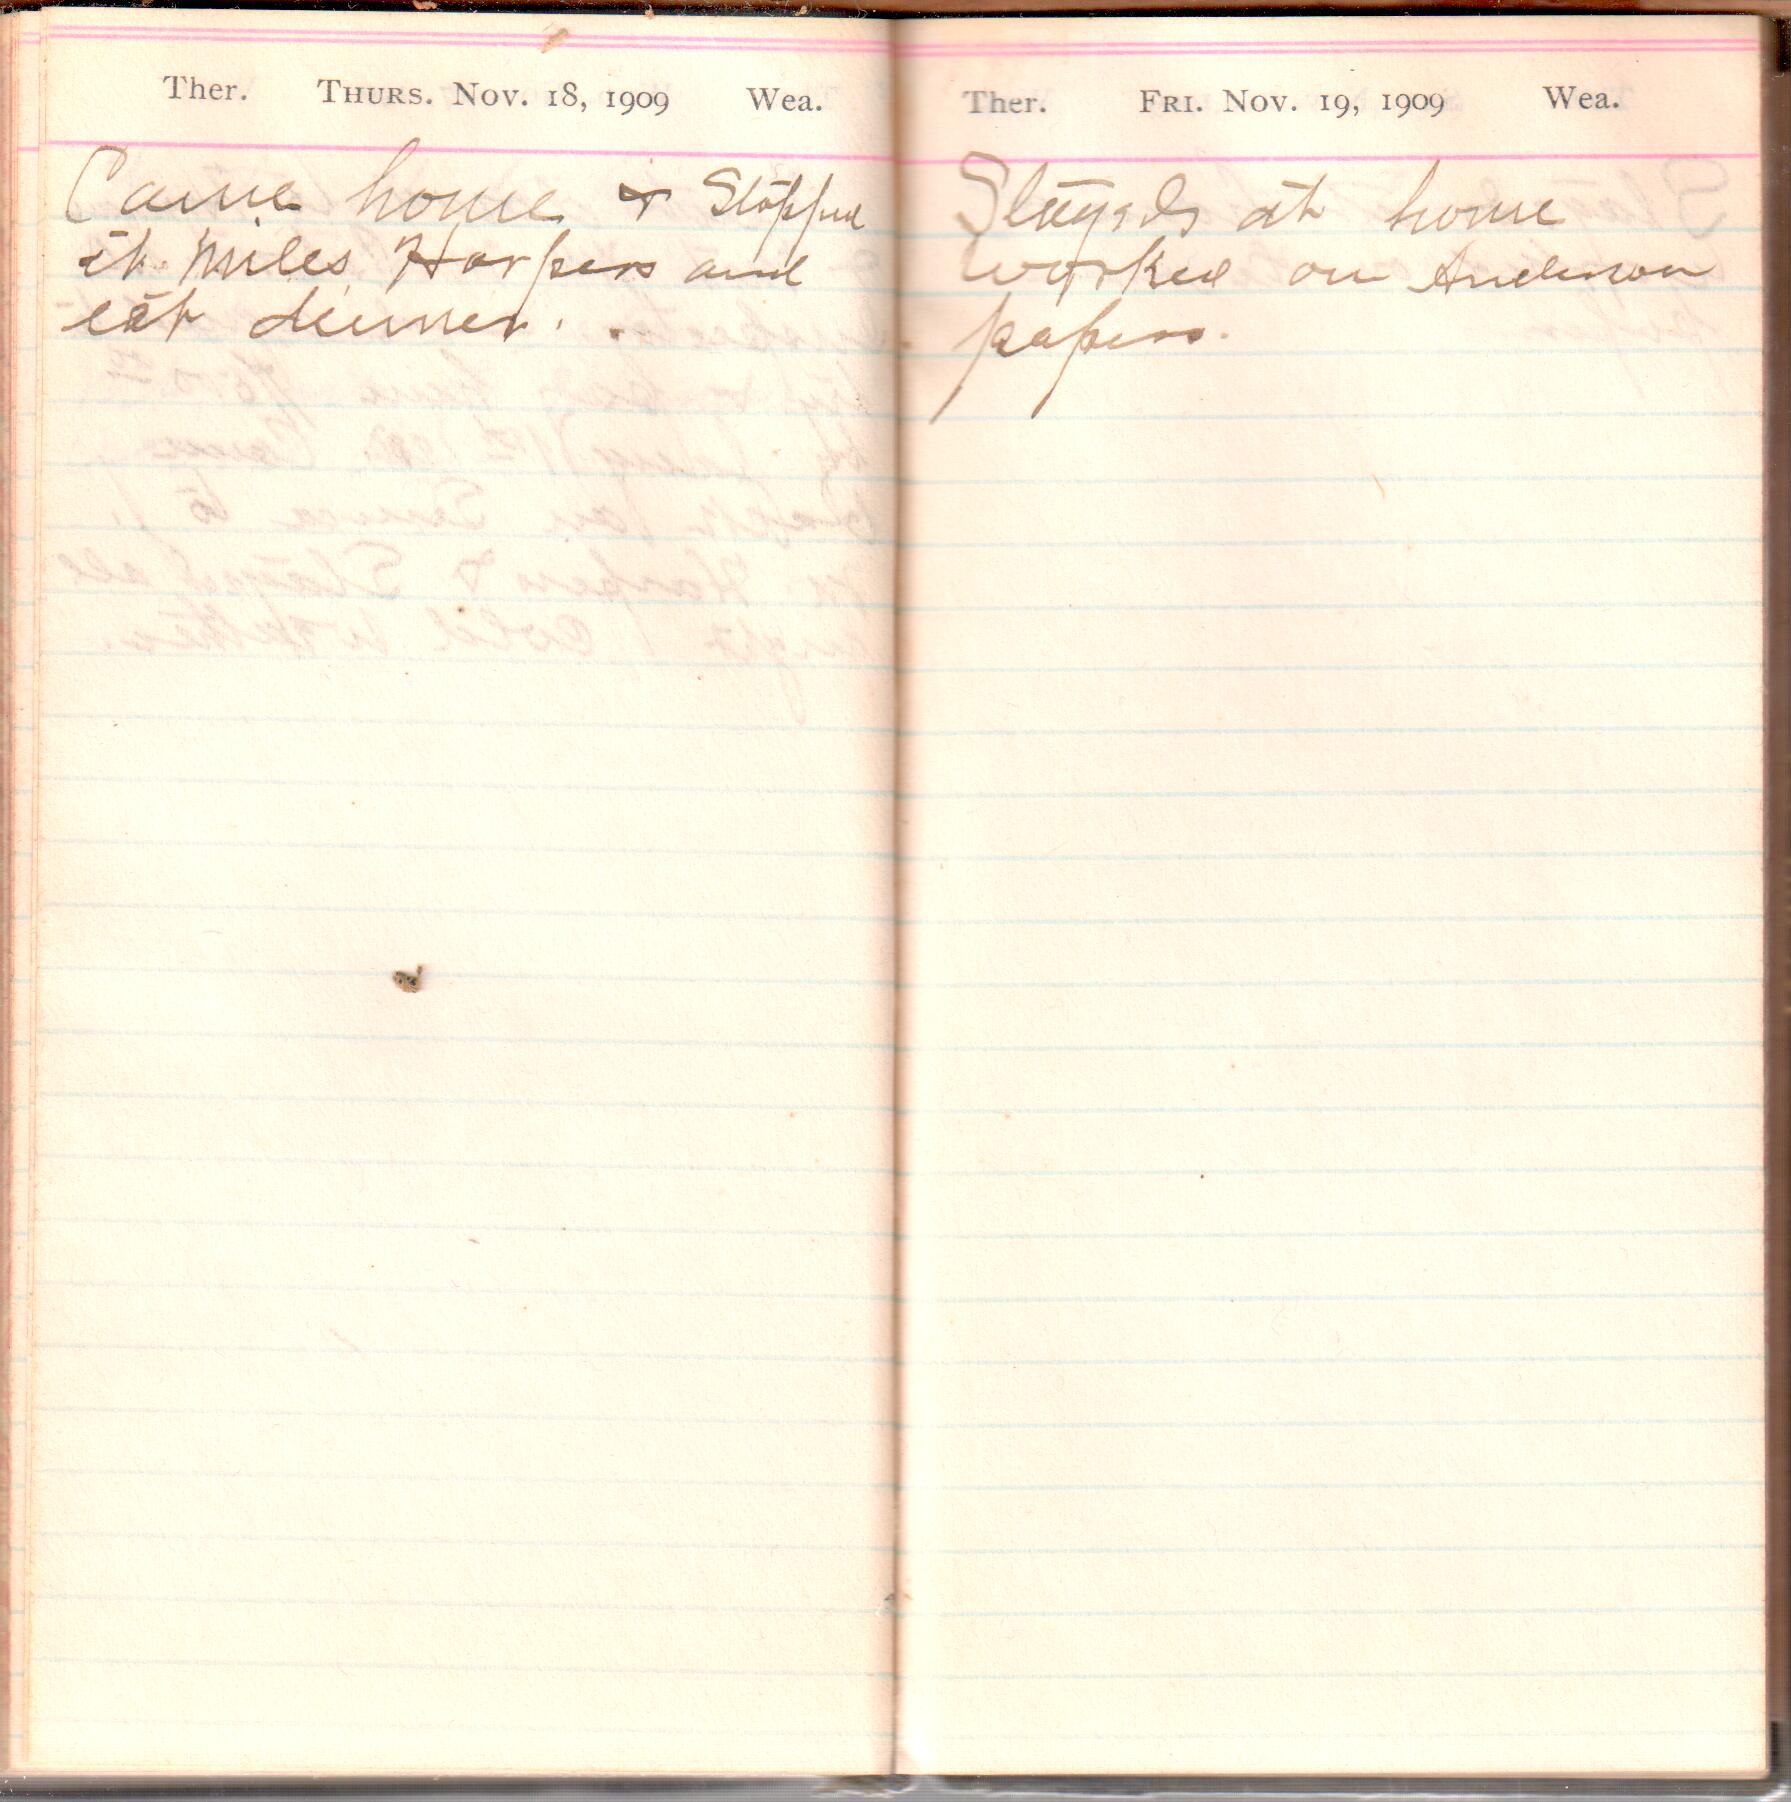 Ther. THURS. NOV. 18, 1909 Wea.
Came home & Stopped
at Miles Harpers and
eat dinner.
Ther. FRI. NOV. 19, 1909 Wea.
Stayed at home
worked on Anderson
papers.